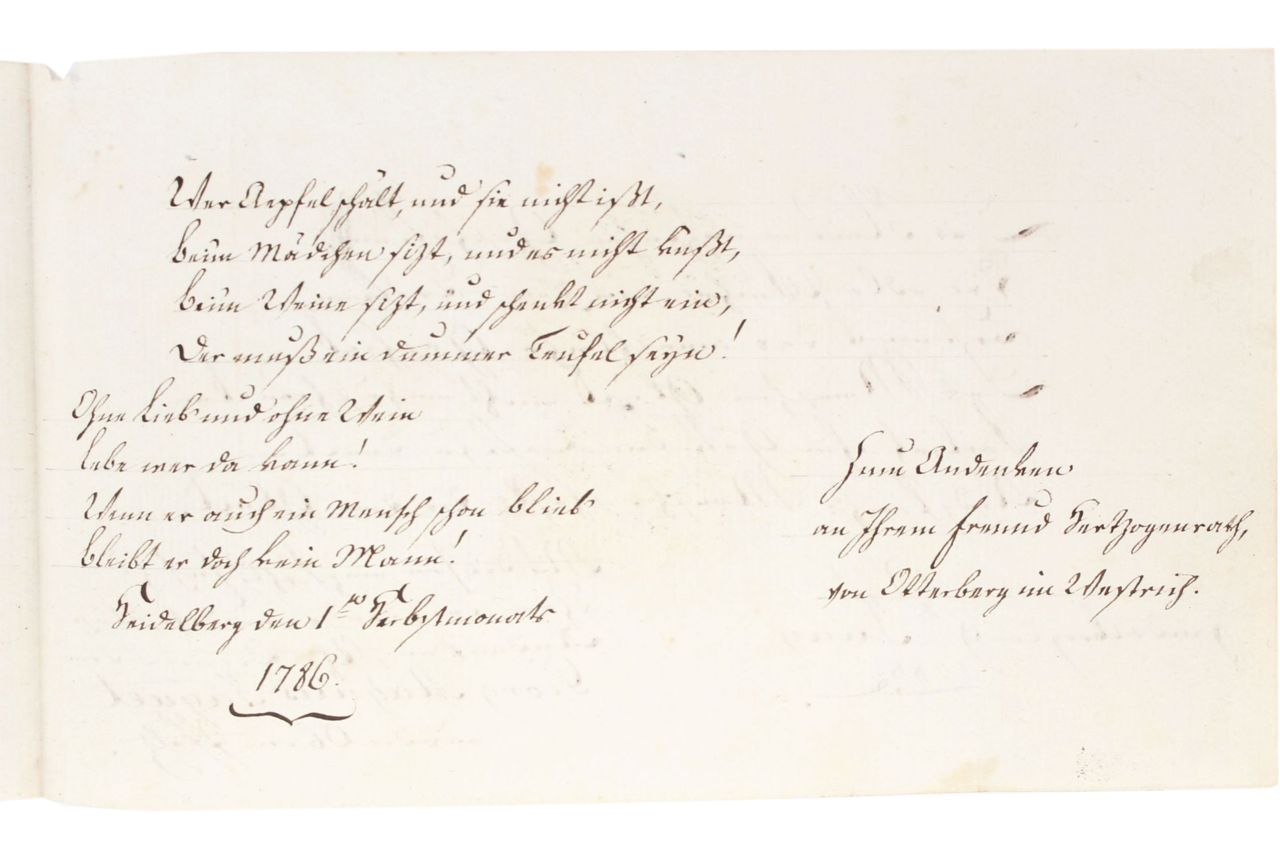 Wer Aepfel schält, und sie nicht ißt,
beim Mädchen sizt, und es nicht küßt,
beim Weine sizt, und schenkt nicht ein,
Der muß ein dummer Teufel seyn!
Ohne Lieb und ohne Wein
Lebe wer da kann!
Wenn er auch ein Mensch schon blieb
Bleibt er doch kein Mann!
Heidelberg den 1ten Herbstmonats
1786.
Zum Andenken
an Ihrem Freund Hertzogenrath,
von Otterberg im Westrich.